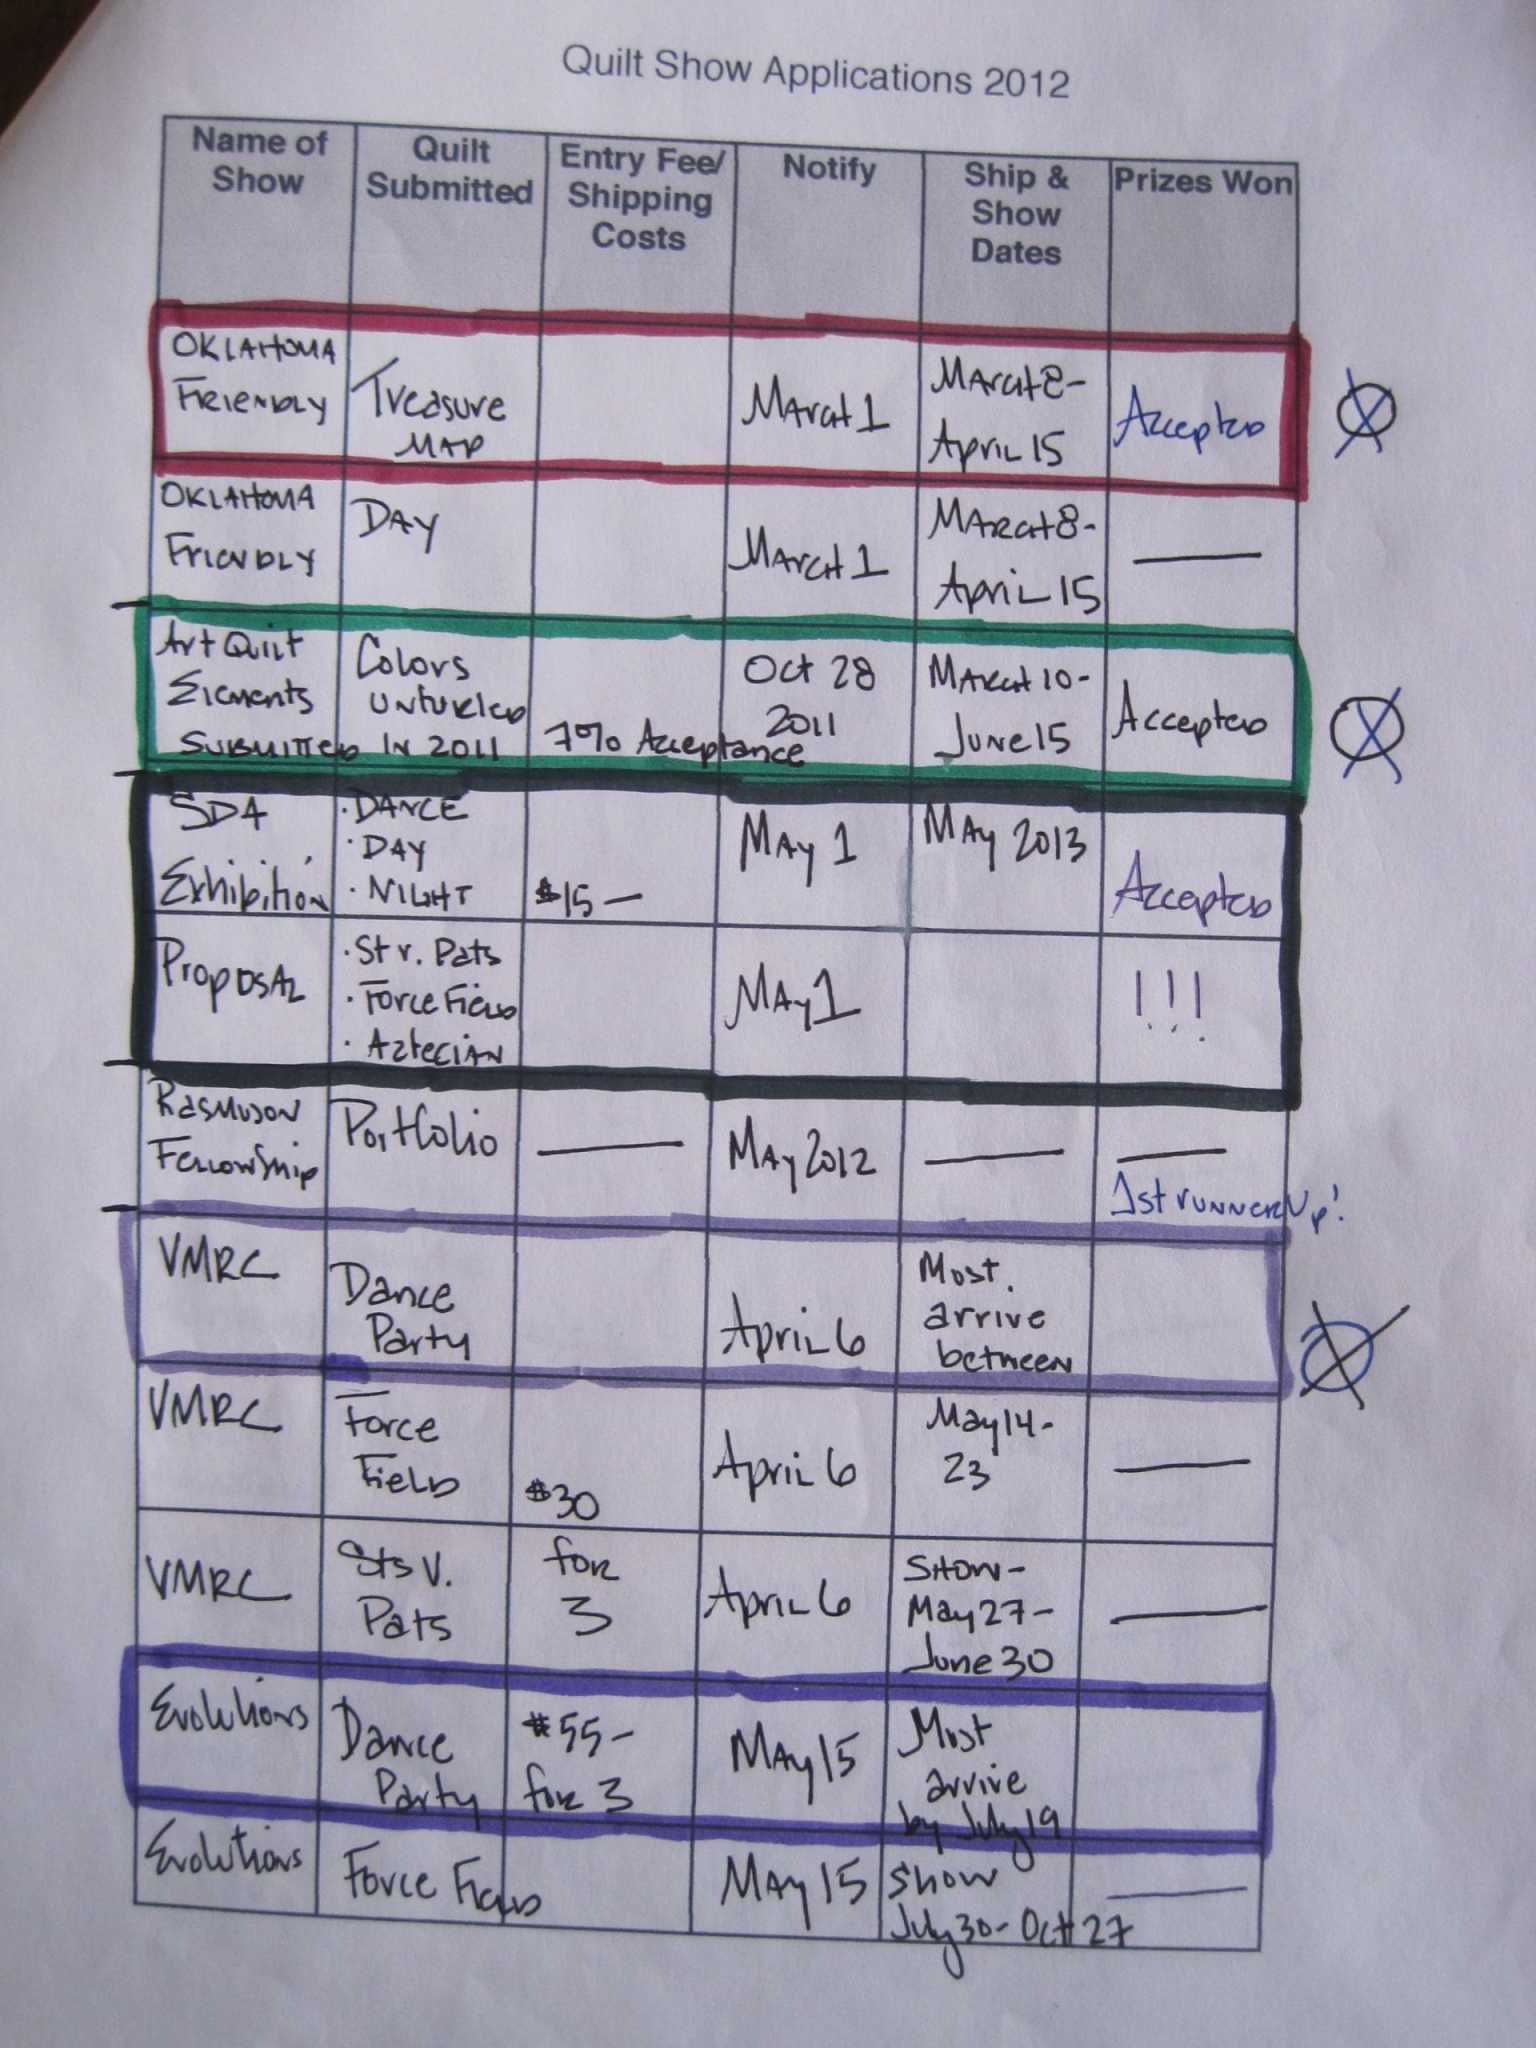 Quilt Show Applications 2012
Name of Show
Quilt Submitted
Entry Fee/ Shipping Costs
Notify
Ship & Show Dates
Prizes Won
OKLAHOMA
FRIENDLY
Treasure
MAP
MARCH 1
MARCH 8-
April 15
Accepted
OKLAHOMA
FRIENDLY
DAY
MARCH 1
MARCH 8-
April 15
Art Quilt
Elements
SUBMITTED IN 2011
Colors
unfurled
7% Acceptance
Oct 28
2011
MARCH 10-
June 15
Accepted
SDA
Exhibition
· DANCE
· DAY
· NIGHT
$15 —
MAY 1
MAY 2013
Accepted
PROPOSAL
· St v. Pats
· Force Field
· AZTECIAN
MAY 1
! ! !
RASMUSON
FELLOWSHIP
Portfolio
MAY 2012
1st RUNNER Up!
VMRC
Dance
Party
April 6
Most.
arrive
between
VMRC
Force
Field
$30
April 6
May 14-
23
VMRC
Sts V.
Pats
for
3
April 6
SHOW-
May 27-
June 30
Evolutions
Dance
Party
$55-
for 3
MAY 15
Most
arrive
by July 19
Evolutions
Force Field
MAY 15
Show
July 30- Oct 27